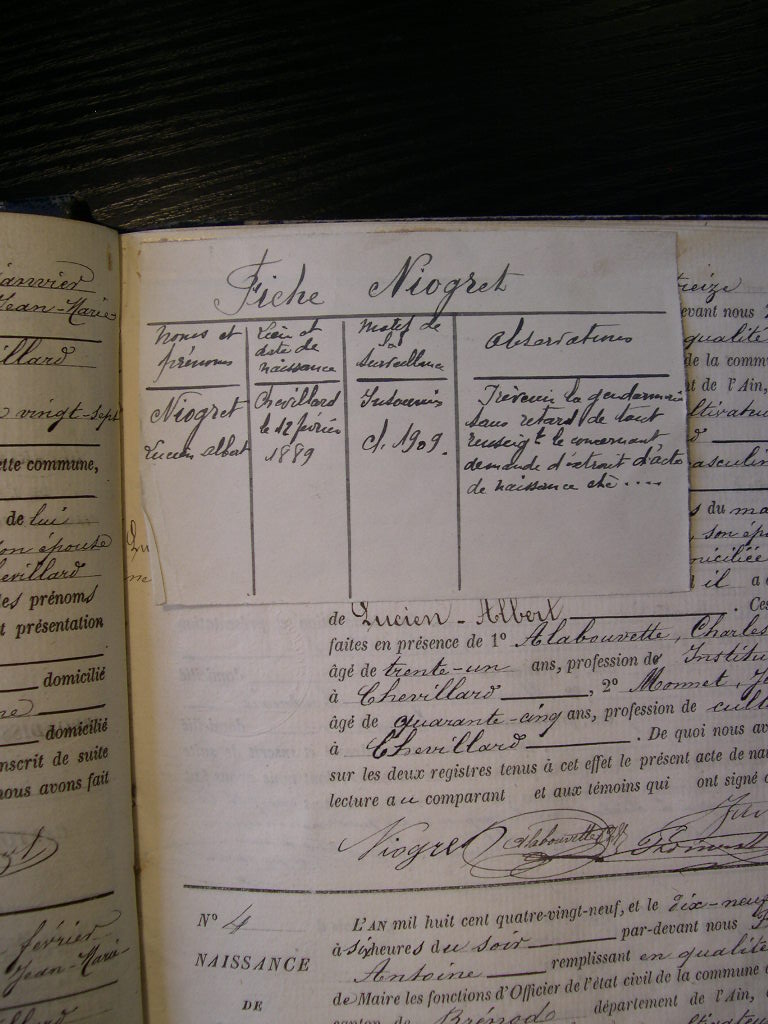 anvier
Jean-Marie
illard
vingt-sept
ette commune,
de lui
on épouse
evillard
les prénoms
t présentation
domicilié
domicilié
nscrit de suite
nous avons fait
février
Jean-Marie
Fiche Niogret
Noms et prénoms
Lieu et date de naissance
Motif de la surveillance
Observations
Niogret
Lucien Albert
Chevillard
le 12 février
1889
Insoumis
cl. 1909.
Prévenir la gendarmerie
sans retard de tout
renseigt le concernant,
demande d'extrait d'acte
de naissance etc ....
treize
evant nous
qualité
de la comm
t de l'Ain,
ltivateu
asculin
s du ma
, son épo
miciliée
il a
de Lucien-Albert . Ces
faites en présence de 1° Alabouvette, Charles
âgé de trente-un ans, profession de Institu
à Chevillard , 2° Monnet, J
âgé de quarante-cinq ans, profession de culti
à Chevillard . De quoi nous av
sur les deux registres tenus à cet effet le présent acte de nai
lecture au comparant et aux témoins qui ont signé a
Niogret Alabouvette
N° 4
NAISSANCE
DE
L'AN mil huit cent quatre-vingt-neuf, et le dix-neuf
à six heures du soir par-devant nous
Antoine remplissant en qualité
de Maire les fonctions d'Officier de l'état civil de la commune
canton de Brénod département de l'Ain,